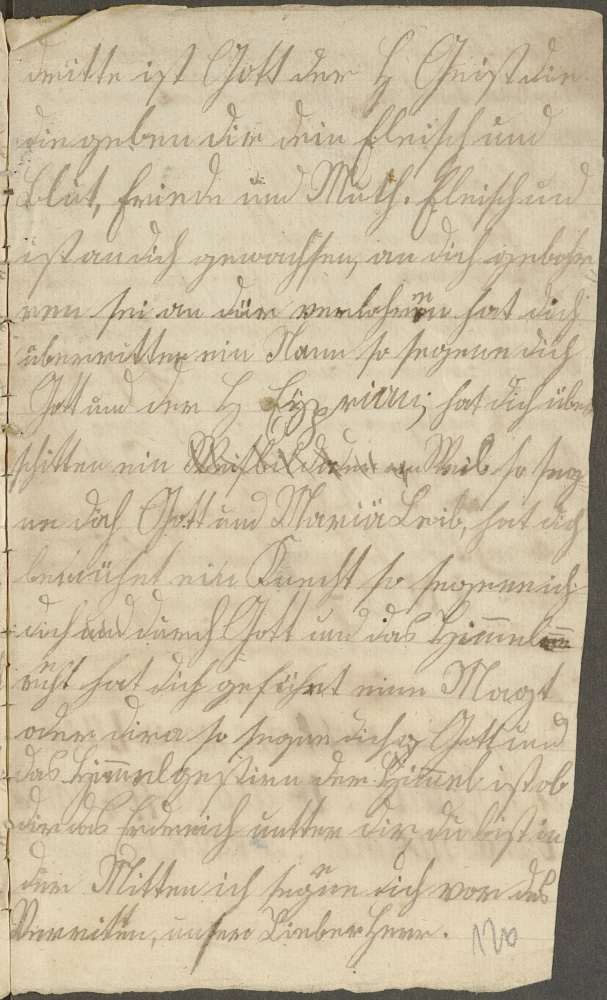 dritte ist Gott der H Geist die
die geben dir dein Fleisch und
Blut, Friede und Muth. Fleisch und
ist an dich gewachsen, an dich gebohr=
ren sei an dür verlohren hat dich
überritten ein Mann so segene dich
Gott und der H Zyprian; hat dich über
schitten ein Weib so seg=
ne dich Gott und Mariä Leib, hat dich
bemühet ein Knecht so segene ich
dich und durch Gott und das Himmel
rist hat dich geführt eine Magt
oder dira so segne dich Gott und
das Himmelgestirn der Himmel ist ob
dir das Erdereich untter dir, du bist in
der Mitten ich segene dich vor das
Verritten, unsern Lieber Herr. 120